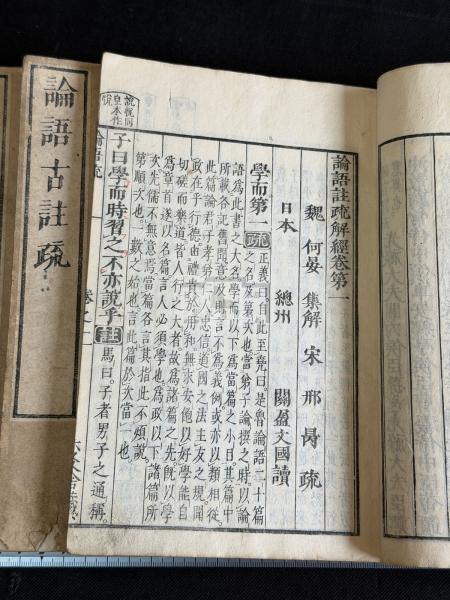 論語註疏解經卷第一
魏 何晏 集解 宋 邢昺 疏
日本 總州 關盈文國讀
學而第一 疏 正義曰自此至堯曰是魯論語二十篇
之名及第次也當弟子論撰之時以論
語爲此書之大名學而以下爲當篇之小目其篇中
所載各記舊聞意及則言不爲義例或亦以類相從
此篇論君子孝弟仁人忠信道國之法主友之規聞
政在乎行德由禮貴於用和無求安飽以好學能自
切磋而樂道皆人行之大者故爲諸篇之先既以學
爲章首遂以名篇言人必須學也爲政以下諸篇所
次先儒不無意焉當篇各言其指此不煩說
第順次也一數之始也言此篇於次當一也
子曰學而時習之不亦說乎 註 馬曰子者男子之通稱
說悅同
皇本作
悅
論語疏
卷之一
論語古註疏